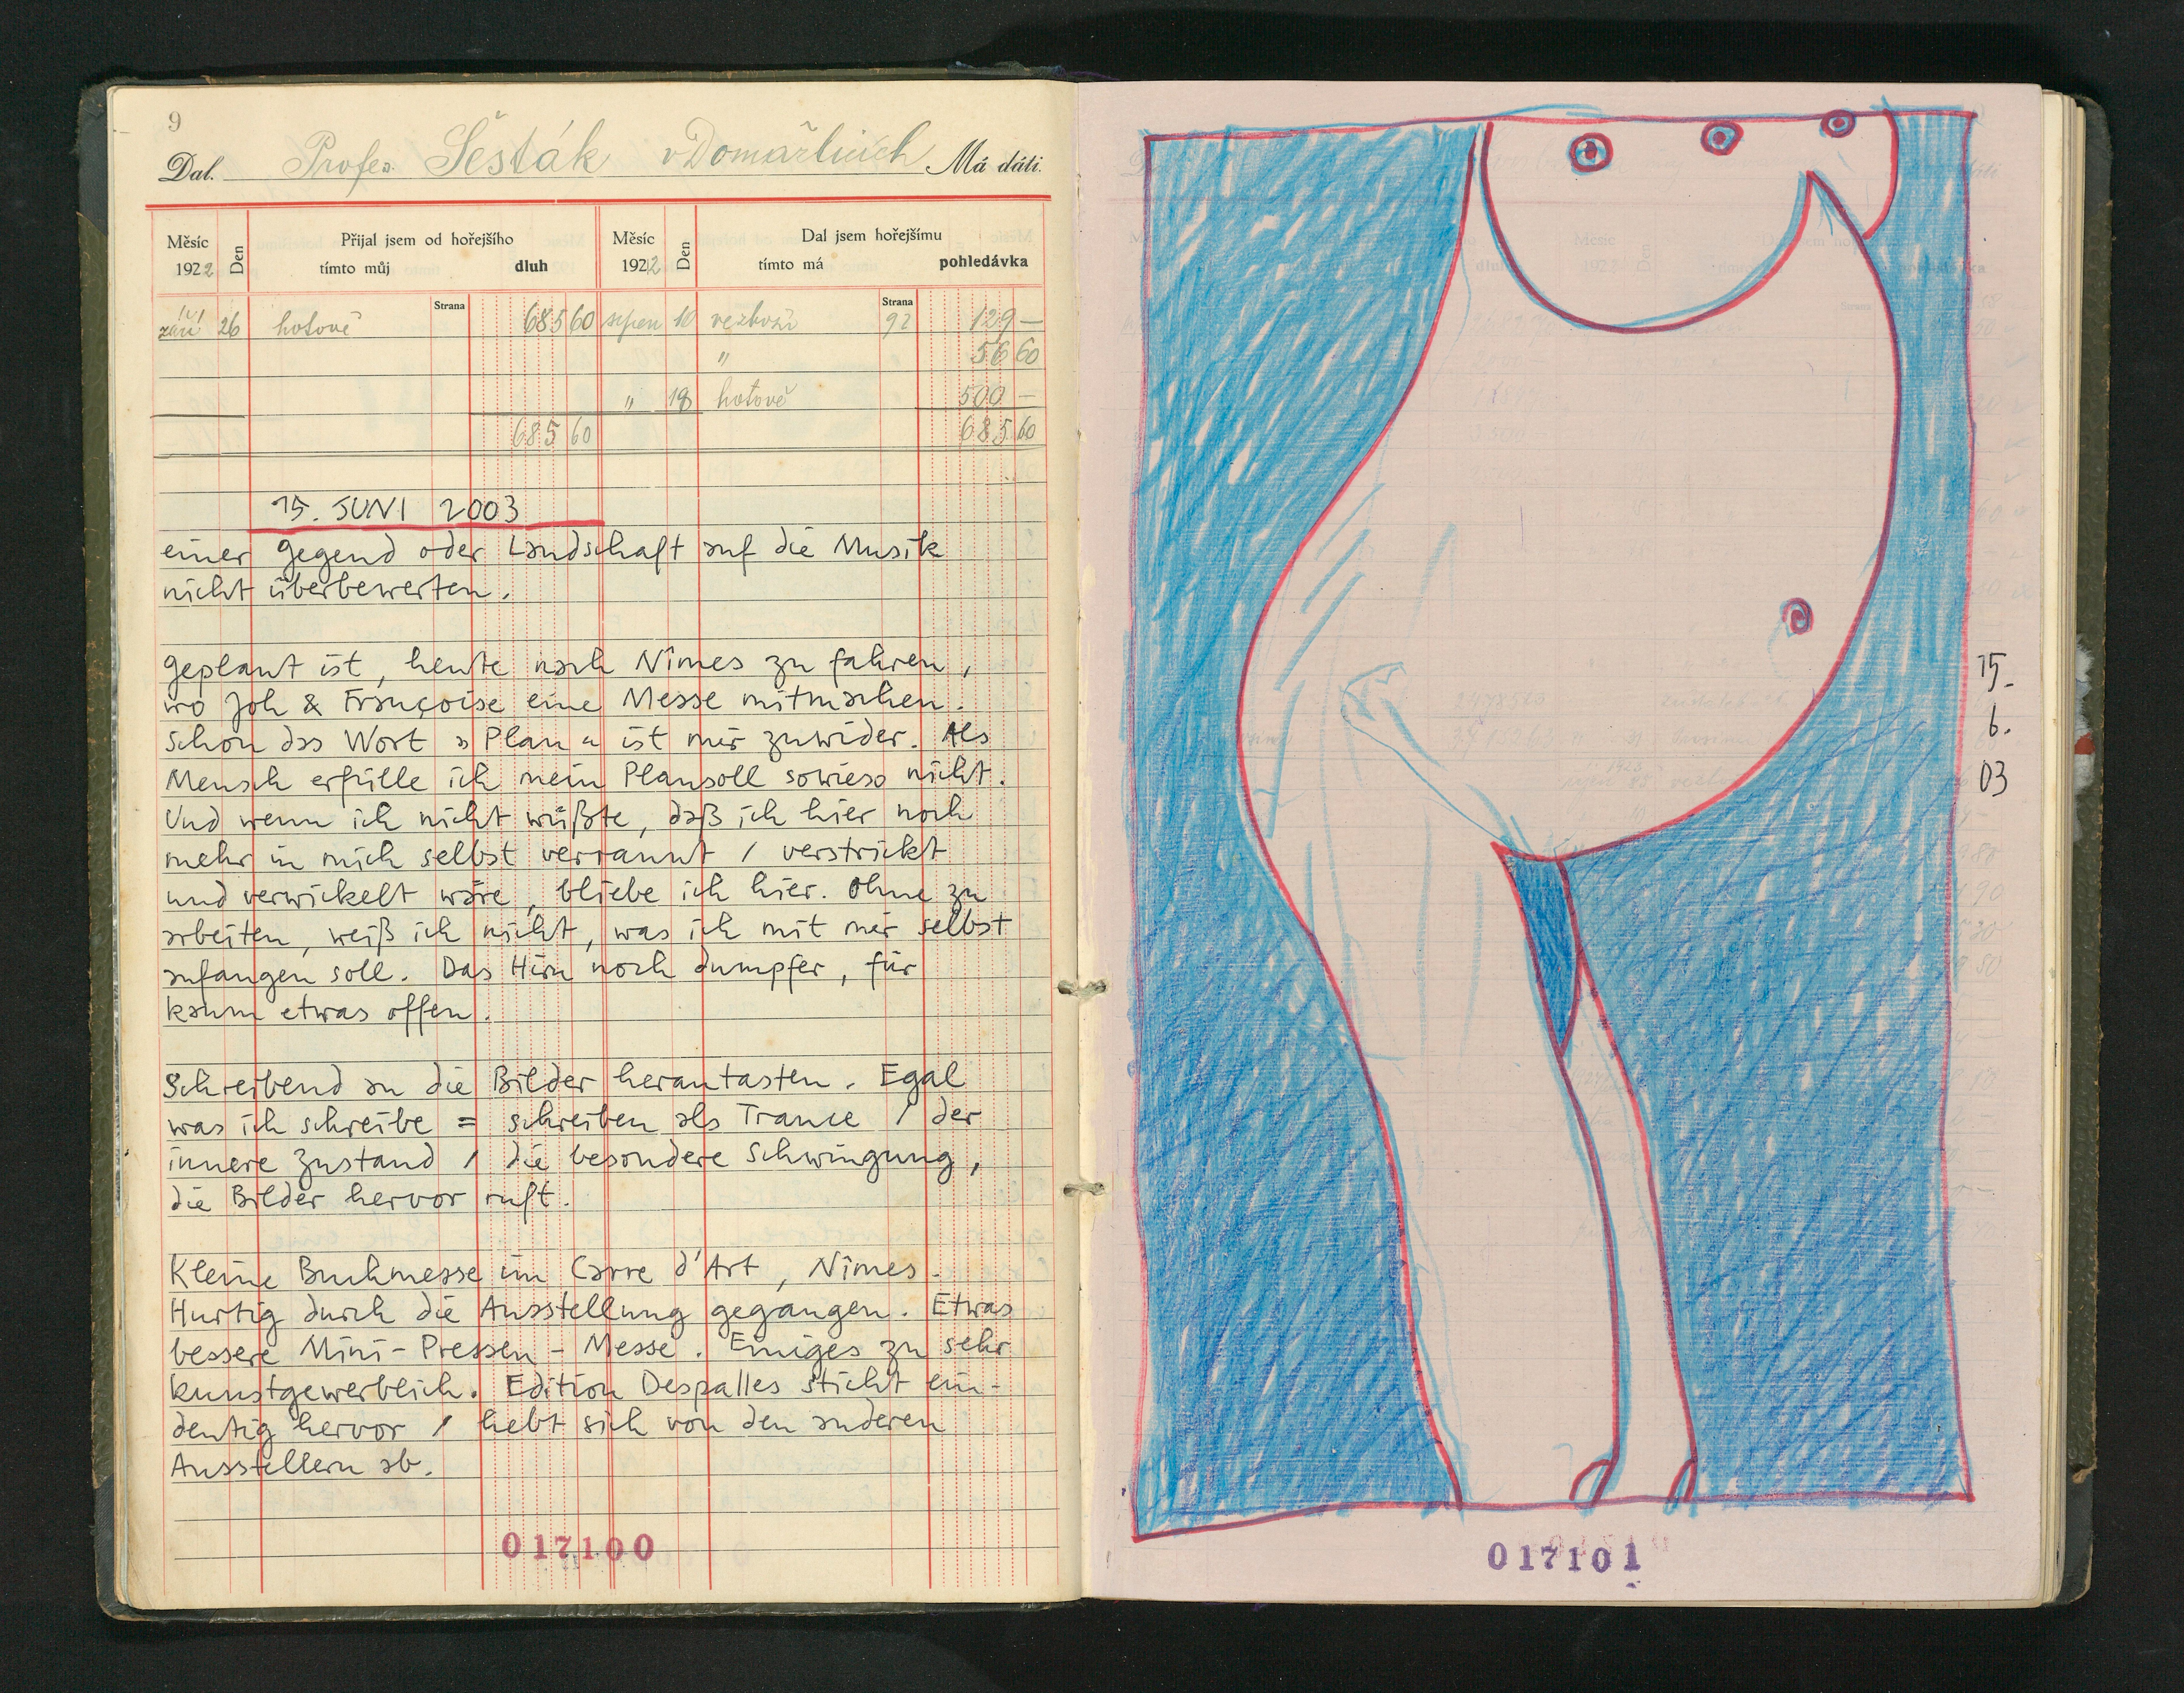 9
Dal. Profes. Šesták v Domažlicích Má dáti.
Měsíc Den Přijal jsem od hořejšího Měsíc Den Dal jsem hořejšímu
1922 tímto můj dluh 1922 tímto má pohledávka
Strana Strana
září 26 hotově 685 60 srpen 10 92 129 —
" 56 60
" 18 hotově 500 —
685 60 685 60
15. JUNI 2003
einer Gegend oder Landschaft auf die Musik
nicht überbewerten.
Geplant ist, heute nach Nîmes zu fahren,
wo Joh & Françoise eine Messe mitmachen.
Schon das Wort »Plan« ist mir zuwider. Als
Mensch erfülle ich mein Plansoll sowieso nicht.
Und wenn ich nicht wüßte, daß ich hier noch
mehr in mich selbst verrannt / verstrickt
und verwickelt wäre, bliebe ich hier. Ohne zu
arbeiten, weiß ich nicht, was ich mit mir selbst
anfangen soll. Das Hirn noch dumpfer, für
kaum etwas offen.
Schreibend an die Bilder herantasten. Egal
was ich schreibe = schreiben als Trance / der
innere Zustand / die besondere Schwingung,
die Bilder hervor ruft.
Kleine Buchmesse im Carre d'Art, Nîmes.
Hurtig durch die Ausstellung gegangen. Etwas
bessere Mini-Pressen-Messe. Einiges zu sehr
kunstgewerblich. Edition Despalles sticht ein-
deutig hervor / hebt sich von den anderen
Ausstellern ab.
017100
15.
6.
03
017101